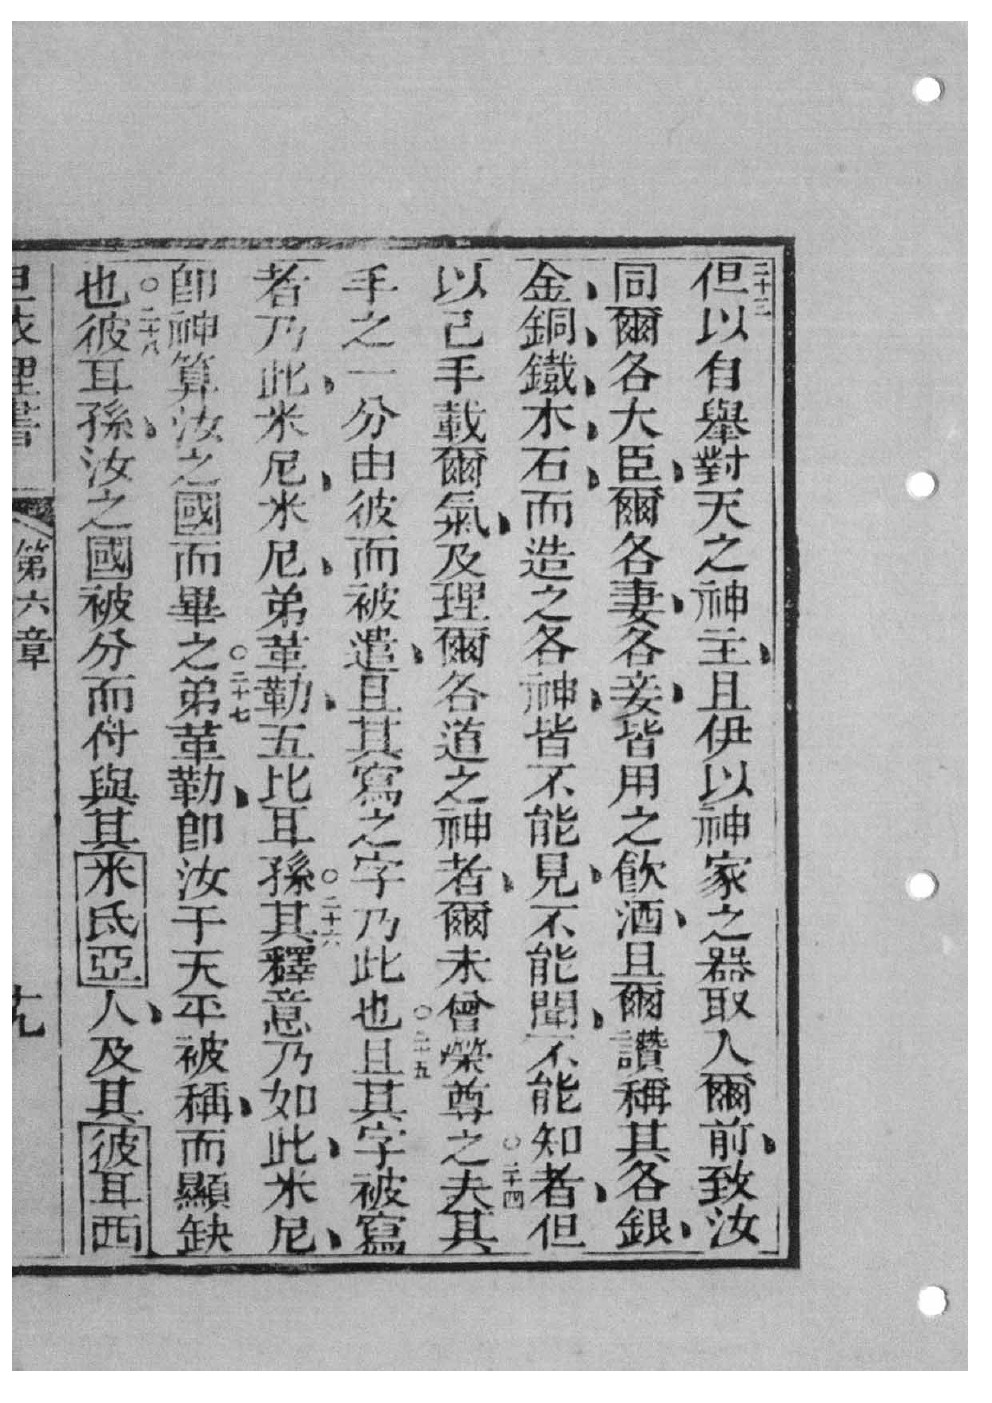 二十三但以自舉對天之神主、且伊以神家之器取入爾前、致汝
同爾各大臣、爾各妻、各妾、皆用之飲酒、且爾讚稱其各銀、
金、銅、鐵、木、石、而造之各神、皆不能見、不能聞、不能知者、○二十四但
以己手載爾氣、及理爾各道之神者、爾未曾榮尊之夫其
手之一分由彼而被遣、且其寫之字乃此也○二十五且其字被寫
者乃此、米尼、米尼、弟革勒、五比耳孫○二十六其釋意乃如此、米尼、
即神算汝之國而畢之○二十七弟革勒、即汝于天平被稱、而顯缺
也○二十八彼耳孫、汝之國被分而付與其米氏亞人、及其彼耳西
但依理書 第六章 十九